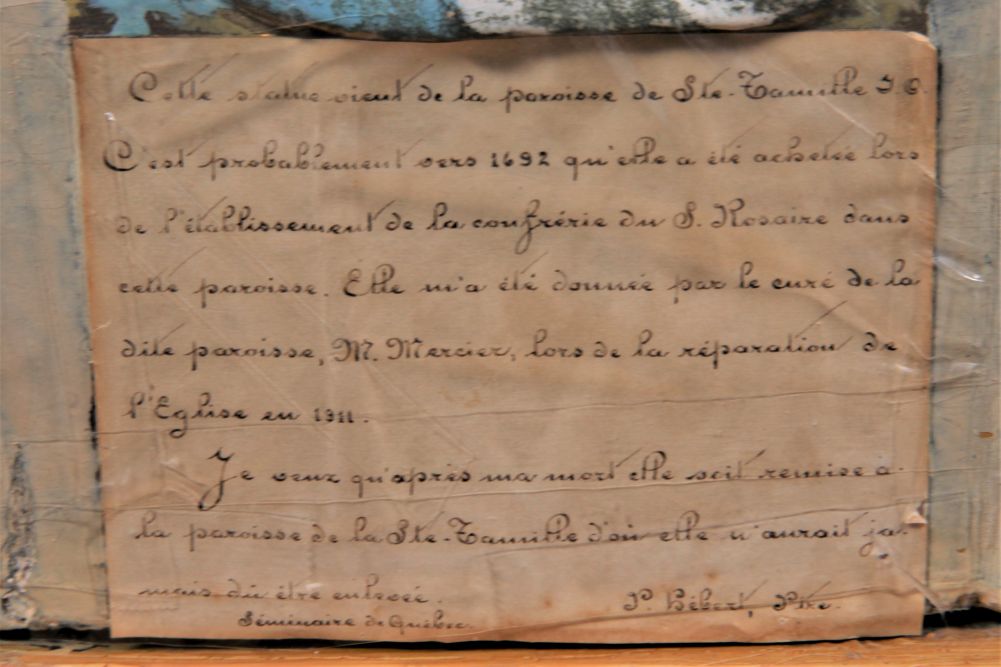 Cette statue vient de la paroisse de Ste-Famille I.O.
C'est probablement vers 1692 qu'elle a été achetée lors
de l'établissement de la confrérie du S. Rosaire dans
cette paroisse. Elle m'a été donnée par le curé de la
dite paroisse, M. Mercier, lors de la réparation de
l'Eglise en 1911.
Je veux qu'après ma mort elle soit remise à
la paroisse de la Ste-Famille d'où elle n'aurait ja-
mais dû être enlevée.
P. Hébert, Ptre.
Séminaire de Québec.